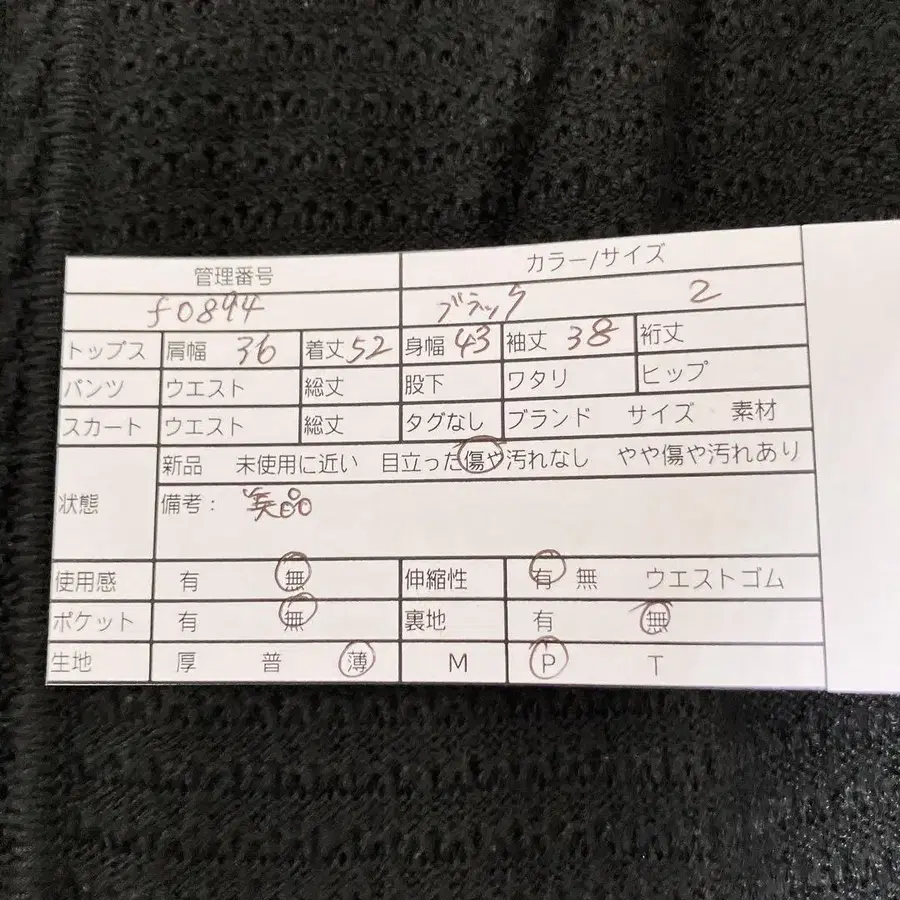 管理番号 カラー/サイズ
f0894 ブラック 2
トップス 肩幅 36 着丈 52 身幅 43 袖丈 38 裄丈
パンツ ウエスト 総丈 股下 ワタリ ヒップ
スカート ウエスト 総丈 タグなし ブランド サイズ 素材
状態 新品 未使用に近い 目立った傷や汚れなし やや傷や汚れあり
備考： 美品
使用感 有 無 伸縮性 有 無 ウエストゴム
ポケット 有 無 裏地 有 無
生地 厚 普 薄 M P T